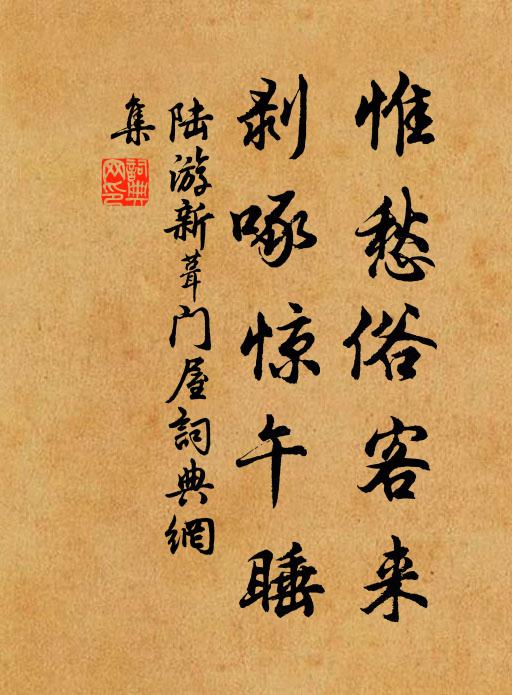 惟愁俗客来
剥啄惊午睡
陆游新葺门屋詞典網
集
詞典
网印